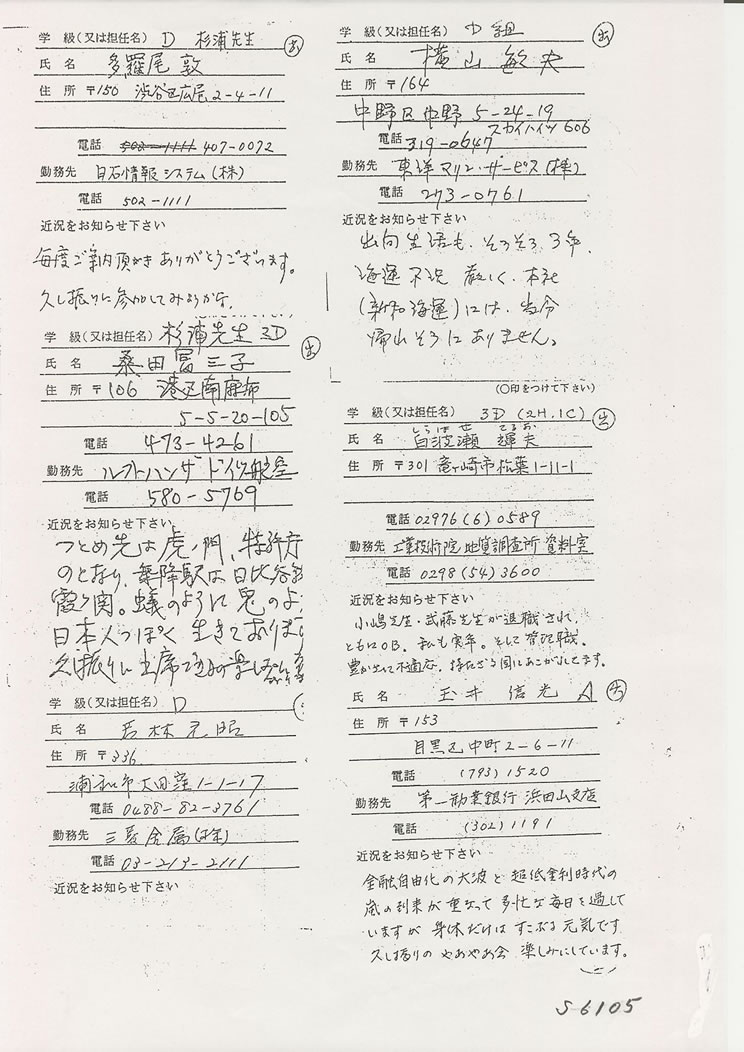 学 級(又は担任名) D 杉浦先生 出
氏 名 多羅尾 敦
住 所 〒150 渋谷区広尾2-4-11
電話 502-1111 407-0072
勤務先 白石情報システム(株)
電話 502-1111
近況をお知らせ下さい
毎度ご案内頂き ありがとうございます。
久し振りに参加してみようか。
学 級(又は担任名) 杉浦先生 3D 出
氏 名 桑田冨三子
住 所 〒106 港区南麻布
5-5-20-105
電話 473-4261
勤務先 ルフトハンザ ドイツ航空
電話 580-5769
近況をお知らせ下さい
つとめ先は虎ノ門、特許庁
のとなり、乗降駅は日比谷
霞ヶ関。蟻のように 鬼のよ
日本人っぽく 生きております
久し振りに出席
学 級(又は担任名) D
氏 名 若林元昭
住 所 〒336
浦和市大田窪1-1-17
電話 0488-82-3761
勤務先 三菱金属(株)
電話 03-213-2111
近況をお知らせ下さい
学 級(又は担任名) D組 出
氏 名 横山敏夫
住 所 〒164
中野区中野 5-24-19
スカイハイツ 606
電話 319-0647
勤務先 東洋マリン・サービス(株)
電話 273-0761
近況をお知らせ下さい
出向生活も、そろそろ3年、
海運不況 厳しく、本社
(新和海運)には、当分
帰れそうにありません。
(○印をつけて下さい)
学 級(又は担任名) 3D (2H.1C) 出
しらはせ てるお
氏 名 白波瀬 輝夫
住 所 〒301 竜ヶ崎市松葉1-11-1
電話 02976(6)0589
勤務先 工業技術院 地質調査所 資料室
電話 0298(54)3600
近況をお知らせ下さい
小嶋先生・武藤先生が退職され、
ともにOB. 私も実年。そして管理職。
豊かさに不適応。持たざる国にあこがれてます。
氏 名 玉井 信光 A 出
住 所 〒153
目黒区中町2-6-11
電話 (793)1520
勤務先 第一勧業銀行 浜田山支店
電話 (302)1191
近況をお知らせ下さい
金融自由化の大波と 超低金利時代の
嵐の到来が 重なって 多忙な毎日を過して
いますが 身体だけは すこぶる元気です
久し振りの やあやあ会 楽しみにしています。
S-6105